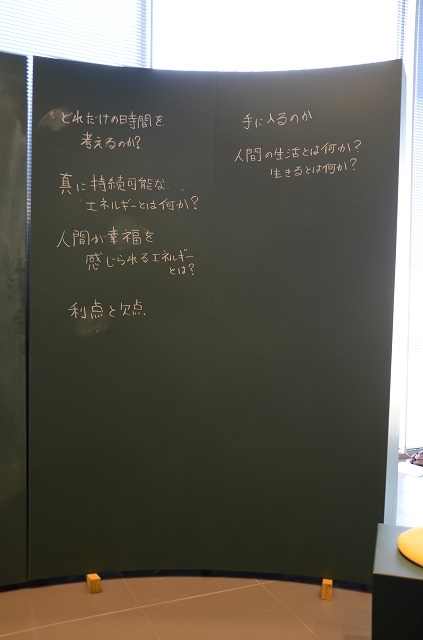 どれだけの時間を
考えるのか?
真に持続可能な
エネルギーとは何か?
人間が幸福を
感じられるエネルギー
とは?
利点と欠点
手に入るのか
人間の生活とは何か?
生きるとは何か?